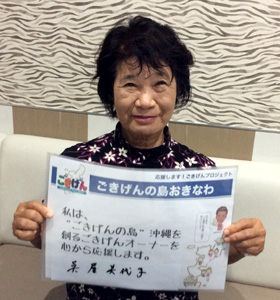 応援します!ごきげんプロジェクト
ごきげん
ごきげんの島おきなわ
私は、
"ごきげんの島"沖縄を
創るごきげんオーナーを
心から応援します。
英屋美代子